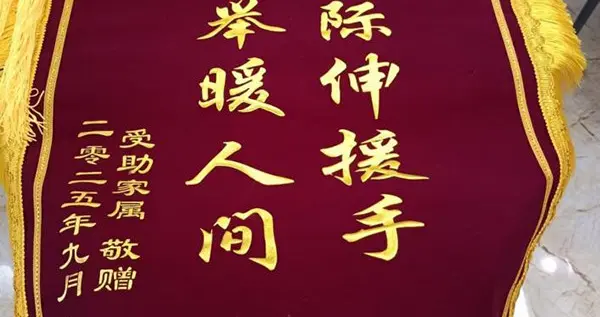 际伸援手
举暖人间
受助家属 敬赠
二零二五年九月